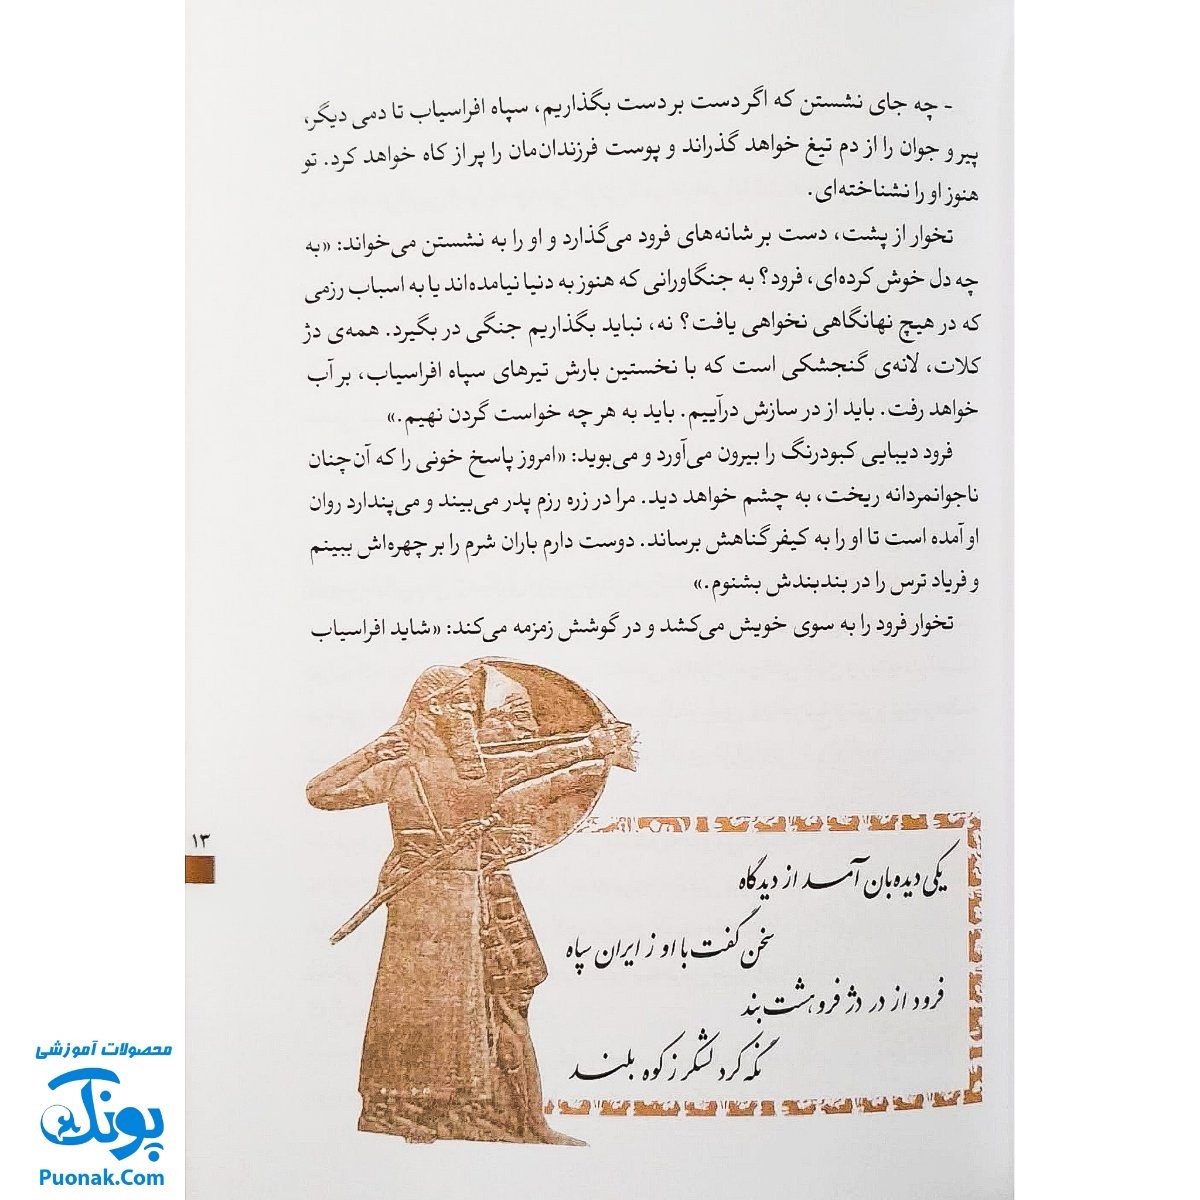 - چه جای نشستن که اگر دست بر دست بگذاریم، سپاه افراسیاب تا دمی دیگر،
پیر و جوان را از دم تیغ خواهد گذراند و پوست فرزندان‌مان را پر از کاه خواهد کرد. تو
هنوز او را نشناخته‌ای.
تخوار از پشت، دست بر شانه‌های فرود می‌گذارد و او را به نشستن می‌خواند: «به
چه دل خوش کرده‌ای، فرود؟ به جنگاورانی که هنوز به دنیا نیامده‌اند یا به اسباب رزمی
که در هیچ نهانگاهی نخواهی یافت؟ نه، نباید بگذاریم جنگی در بگیرد. همه‌ی دژ
کلات، لانه‌ی گنجشکی است که با نخستین بارش تیرهای سپاه افراسیاب، بر آب
خواهد رفت. باید از در سازش درآییم. باید به هر چه خواست گردن نهیم.»
فرود دیبایی کبودرنگ را بیرون می‌آورد و می‌بوید: «امروز پاسخ خونی را که آن‌چنان
ناجوانمردانه ریخت، به چشم خواهد دید. مرا در زره رزم پدر می‌بیند و می‌پندارد روان
او آمده است تا او را به کیفر گناهش برساند. دوست دارم باران شرم را بر چهره‌اش ببینم
و فریاد ترس را در بندبندش بشنوم.»
تخوار فرود را به سوی خویش می‌کشد و در گوشش زمزمه می‌کند: «شاید افراسیاب
۱۳
یکی دیده‌بان آمد از دیدگاه
سخن گفت با او ز ایران سپاه
فرود از در دژ فروهشت بند
نگه کرد لشکر ز کوه بلند
محصولات آموزشی
پونک
Puonak.Com